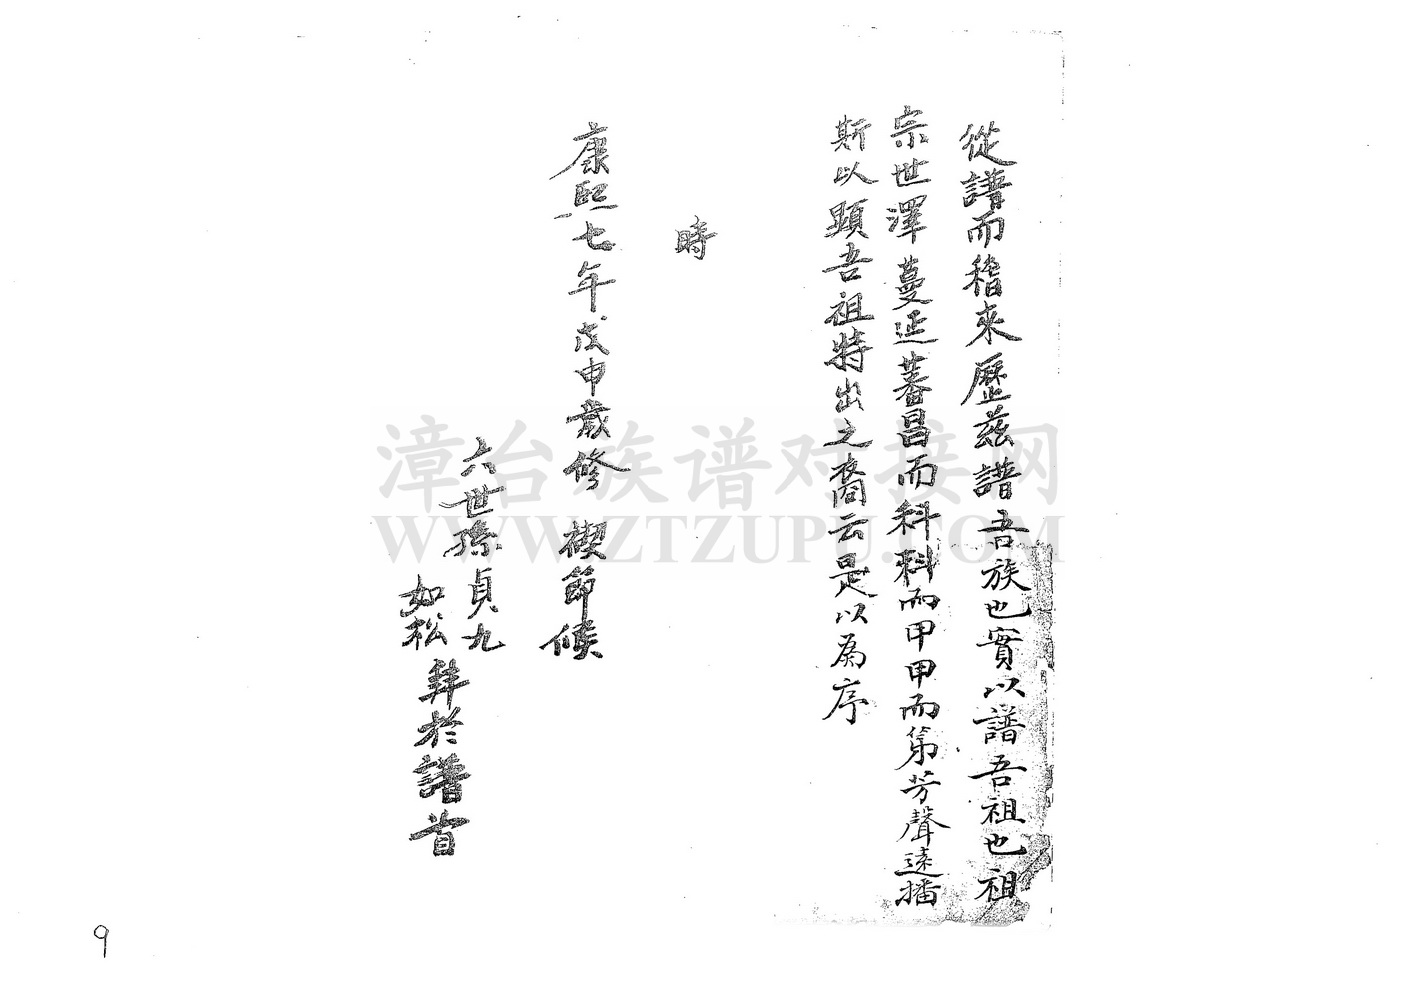 從譜而稽來歷茲譜吾族也實以譜吾祖也祖
宗世澤蔓延蕃昌而科科而甲甲而第芳聲遠播
斯以顯吾祖特出之裔云是以為序
時
康熙七年戊申歲修 禊節候
六世孫貞九
如松
拜於譜首
漳台族谱对接网
WWW.ZTZUPU.COM
9